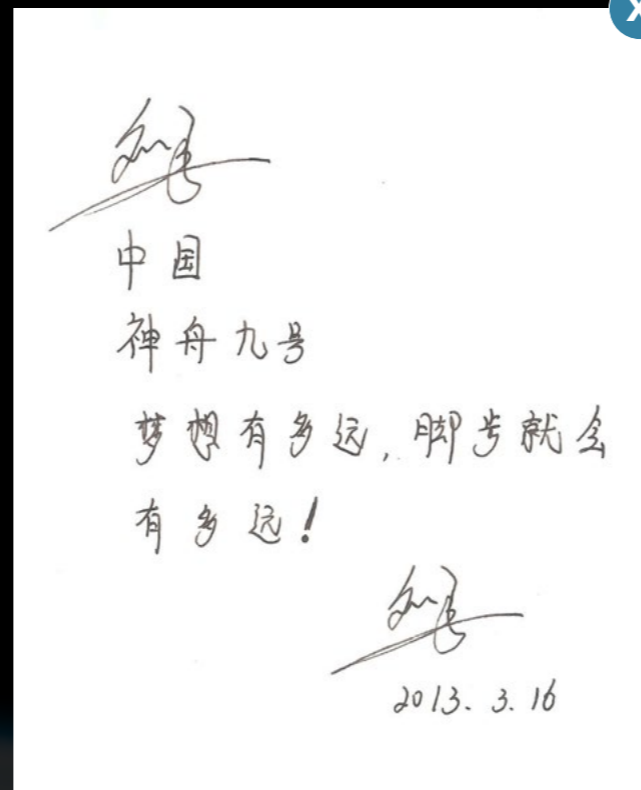 中国
神舟九号
梦想有多远，脚步就会
有多远！
2013.3.16